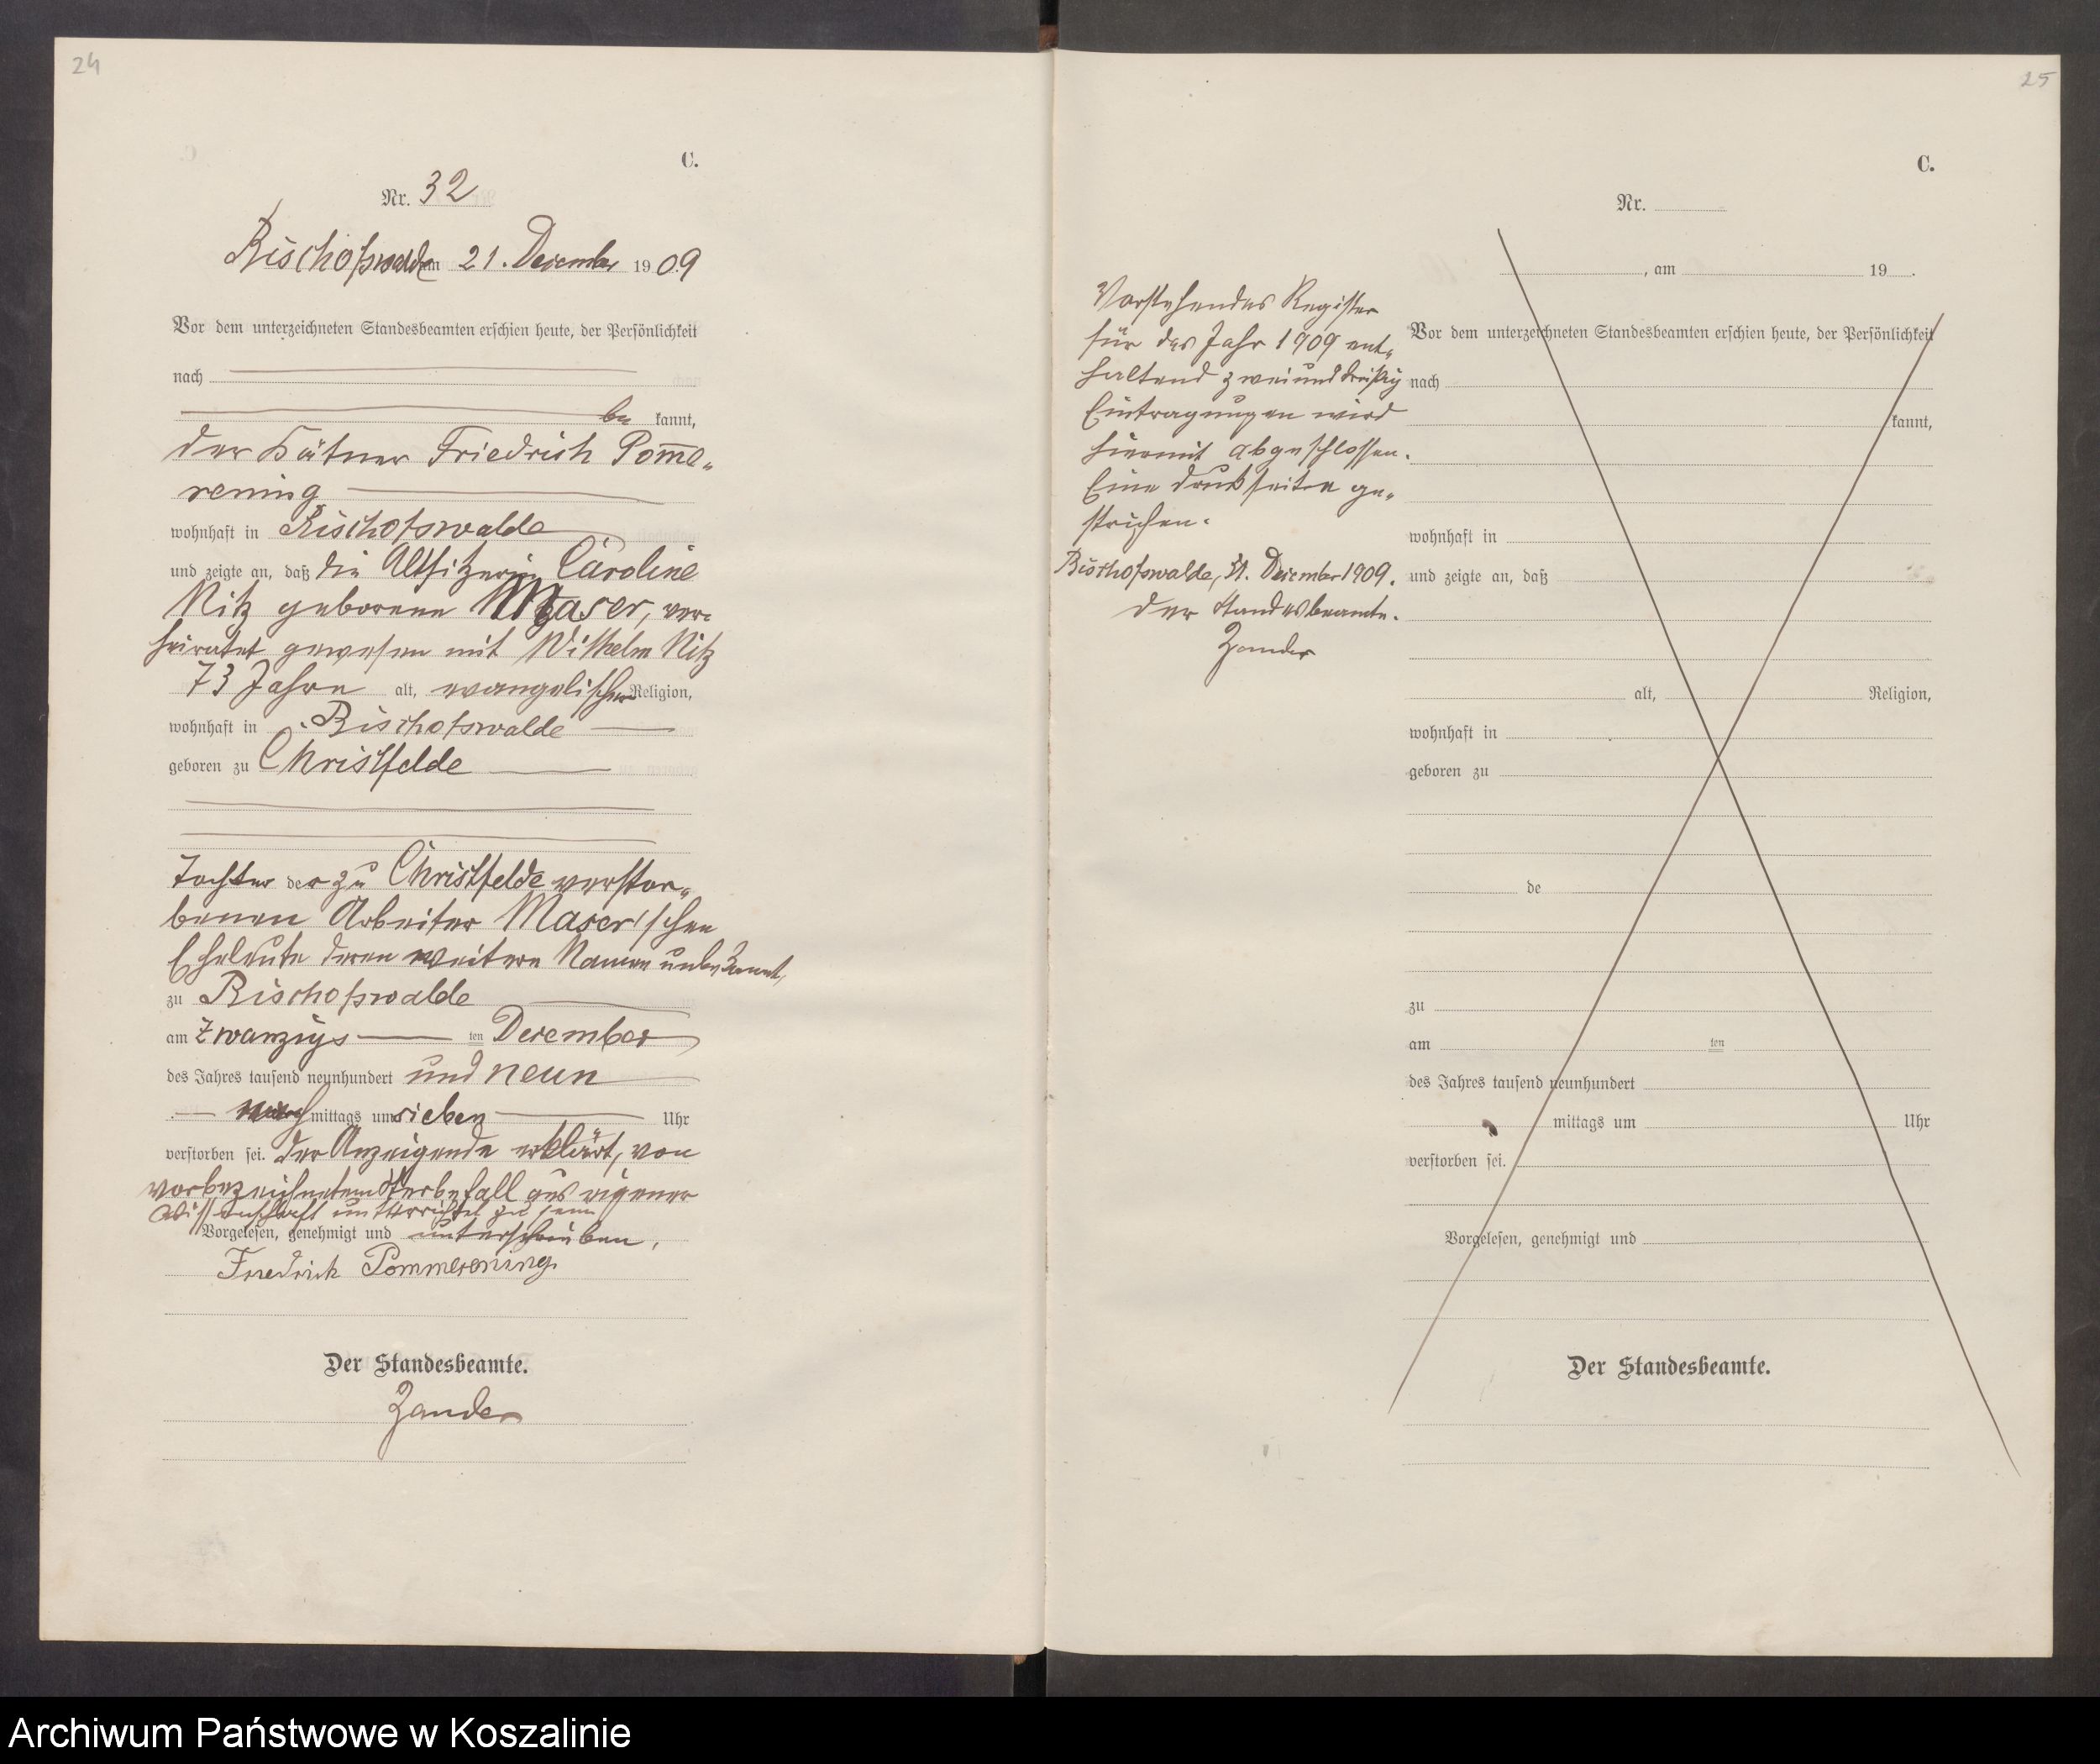 24
C.
Nr. 32
Bischofswalde am 21. December 1909
Vor dem unterzeichneten Standesbeamten erschien heute, der Persönlichkeit
nach
be kannt,
der Kätner Friedrich Pom̅e-
rening
wohnhaft in Bischofswalde
und zeigte an, daß die Altsitzerin Caroline
Nitz geborene Maser, ver-
heiratet gewesen mit Wilhelm Nitz
73 Jahre alt, evangelischer Religion,
wohnhaft in Bischofswalde
geboren zu Christfelde
Tochter der zu Christfelde verstor-
benen Arbeiter Maser'schen
Eheleute deren weitere Namen unbekannt,
zu Bischofswalde
am zwanzigs ten December
des Jahres tausend neunhundert und neun
nach mittags um sieben Uhr
verstorben sei. Der Anzeigende erklärt, von
vorbezeichnetem Sterbefall aus eigener
Wissenschaft unterrichtet zu sein
Vorgelesen, genehmigt und unterschrieben,
Friedrich Pommerening
Der Standesbeamte.
Zander
25
C.
Nr.
, am 19 .
Vorstehendes Register
für das Jahr 1909 ent-
haltend zweiunddreißig
Eintragungen wird
hiermit abgeschlossen.
Eine Druckseite ge-
strichen.
Bischofswalde, 31. December 1909.
Der Standesbeamte.
Zander
Vor dem unterzeichneten Standesbeamten erschien heute, der Persönlichkeit
nach
kannt,
wohnhaft in
und zeigte an, daß
alt, Religion,
wohnhaft in
geboren zu
de
zu
am ten
des Jahres tausend neunhundert
mittags um Uhr
verstorben sei.
Vorgelesen, genehmigt und
Der Standesbeamte.
Archiwum Państwowe w Koszalinie